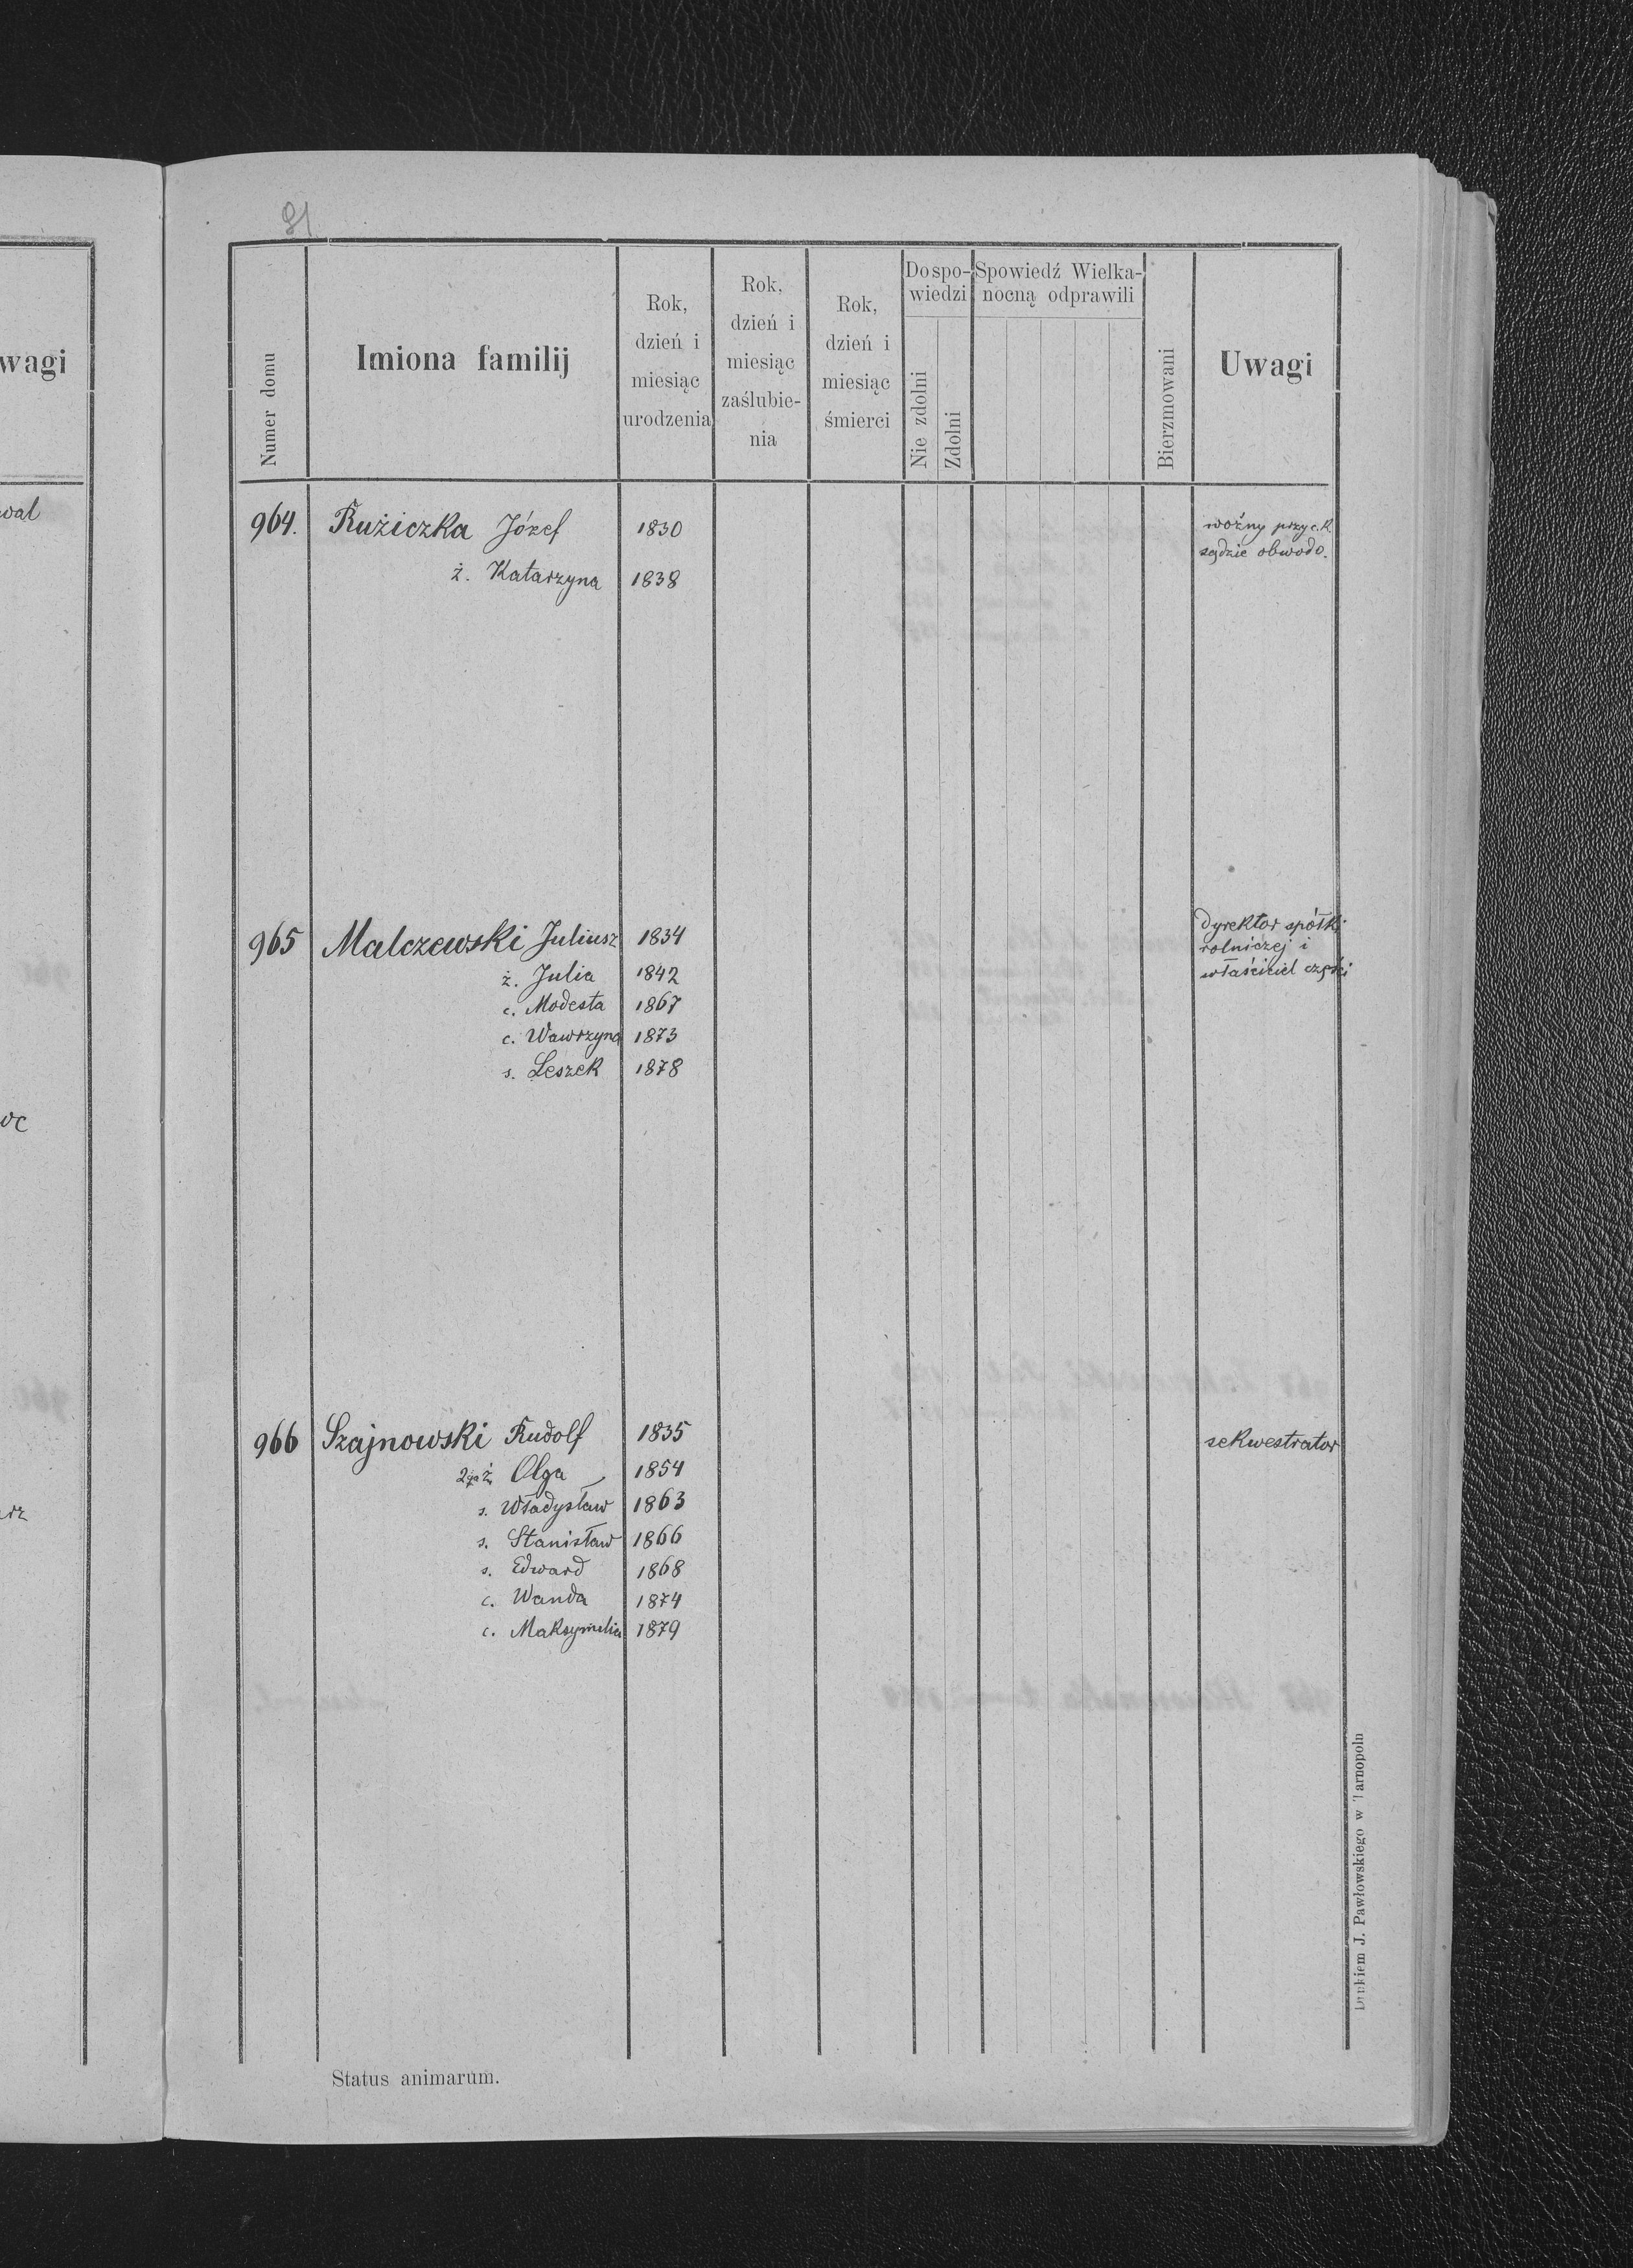 wagi
wal
81
Numer domu
Imiona familij
Rok,
dzień i
miesiąc
urodzenia
Rok,
dzień i
miesiąc
zaślubie-
nia
Rok,
dzień i
miesiąc
śmierci
Do spo-
wiedzi
Nie zdolni
Zdolni
Spowiedź Wielka-
nocną odprawili
Bierzmowani
Uwagi
964. Rużiczka Józef 1830 woźny przy c.k.
sądzie obwodo.
ż. Katarzyna 1838
965 Malczewski Juliusz 1834 dyrektor spółki
rolniczej i
właściciel części
ż. Julia 1842
c. Modesta 1867
c. Wawrzyna 1873
s. Leszek 1878
966 Szajnowski Rudolf 1835 sekwestrator
2ga ż. Olga 1854
s. Władysław 1863
s. Stanisław 1866
s. Edward 1868
c. Wanda 1874
c. Maksymilia 1879
Status animarum.
Drukiem J. Pawłowskiego w Tarnopolu